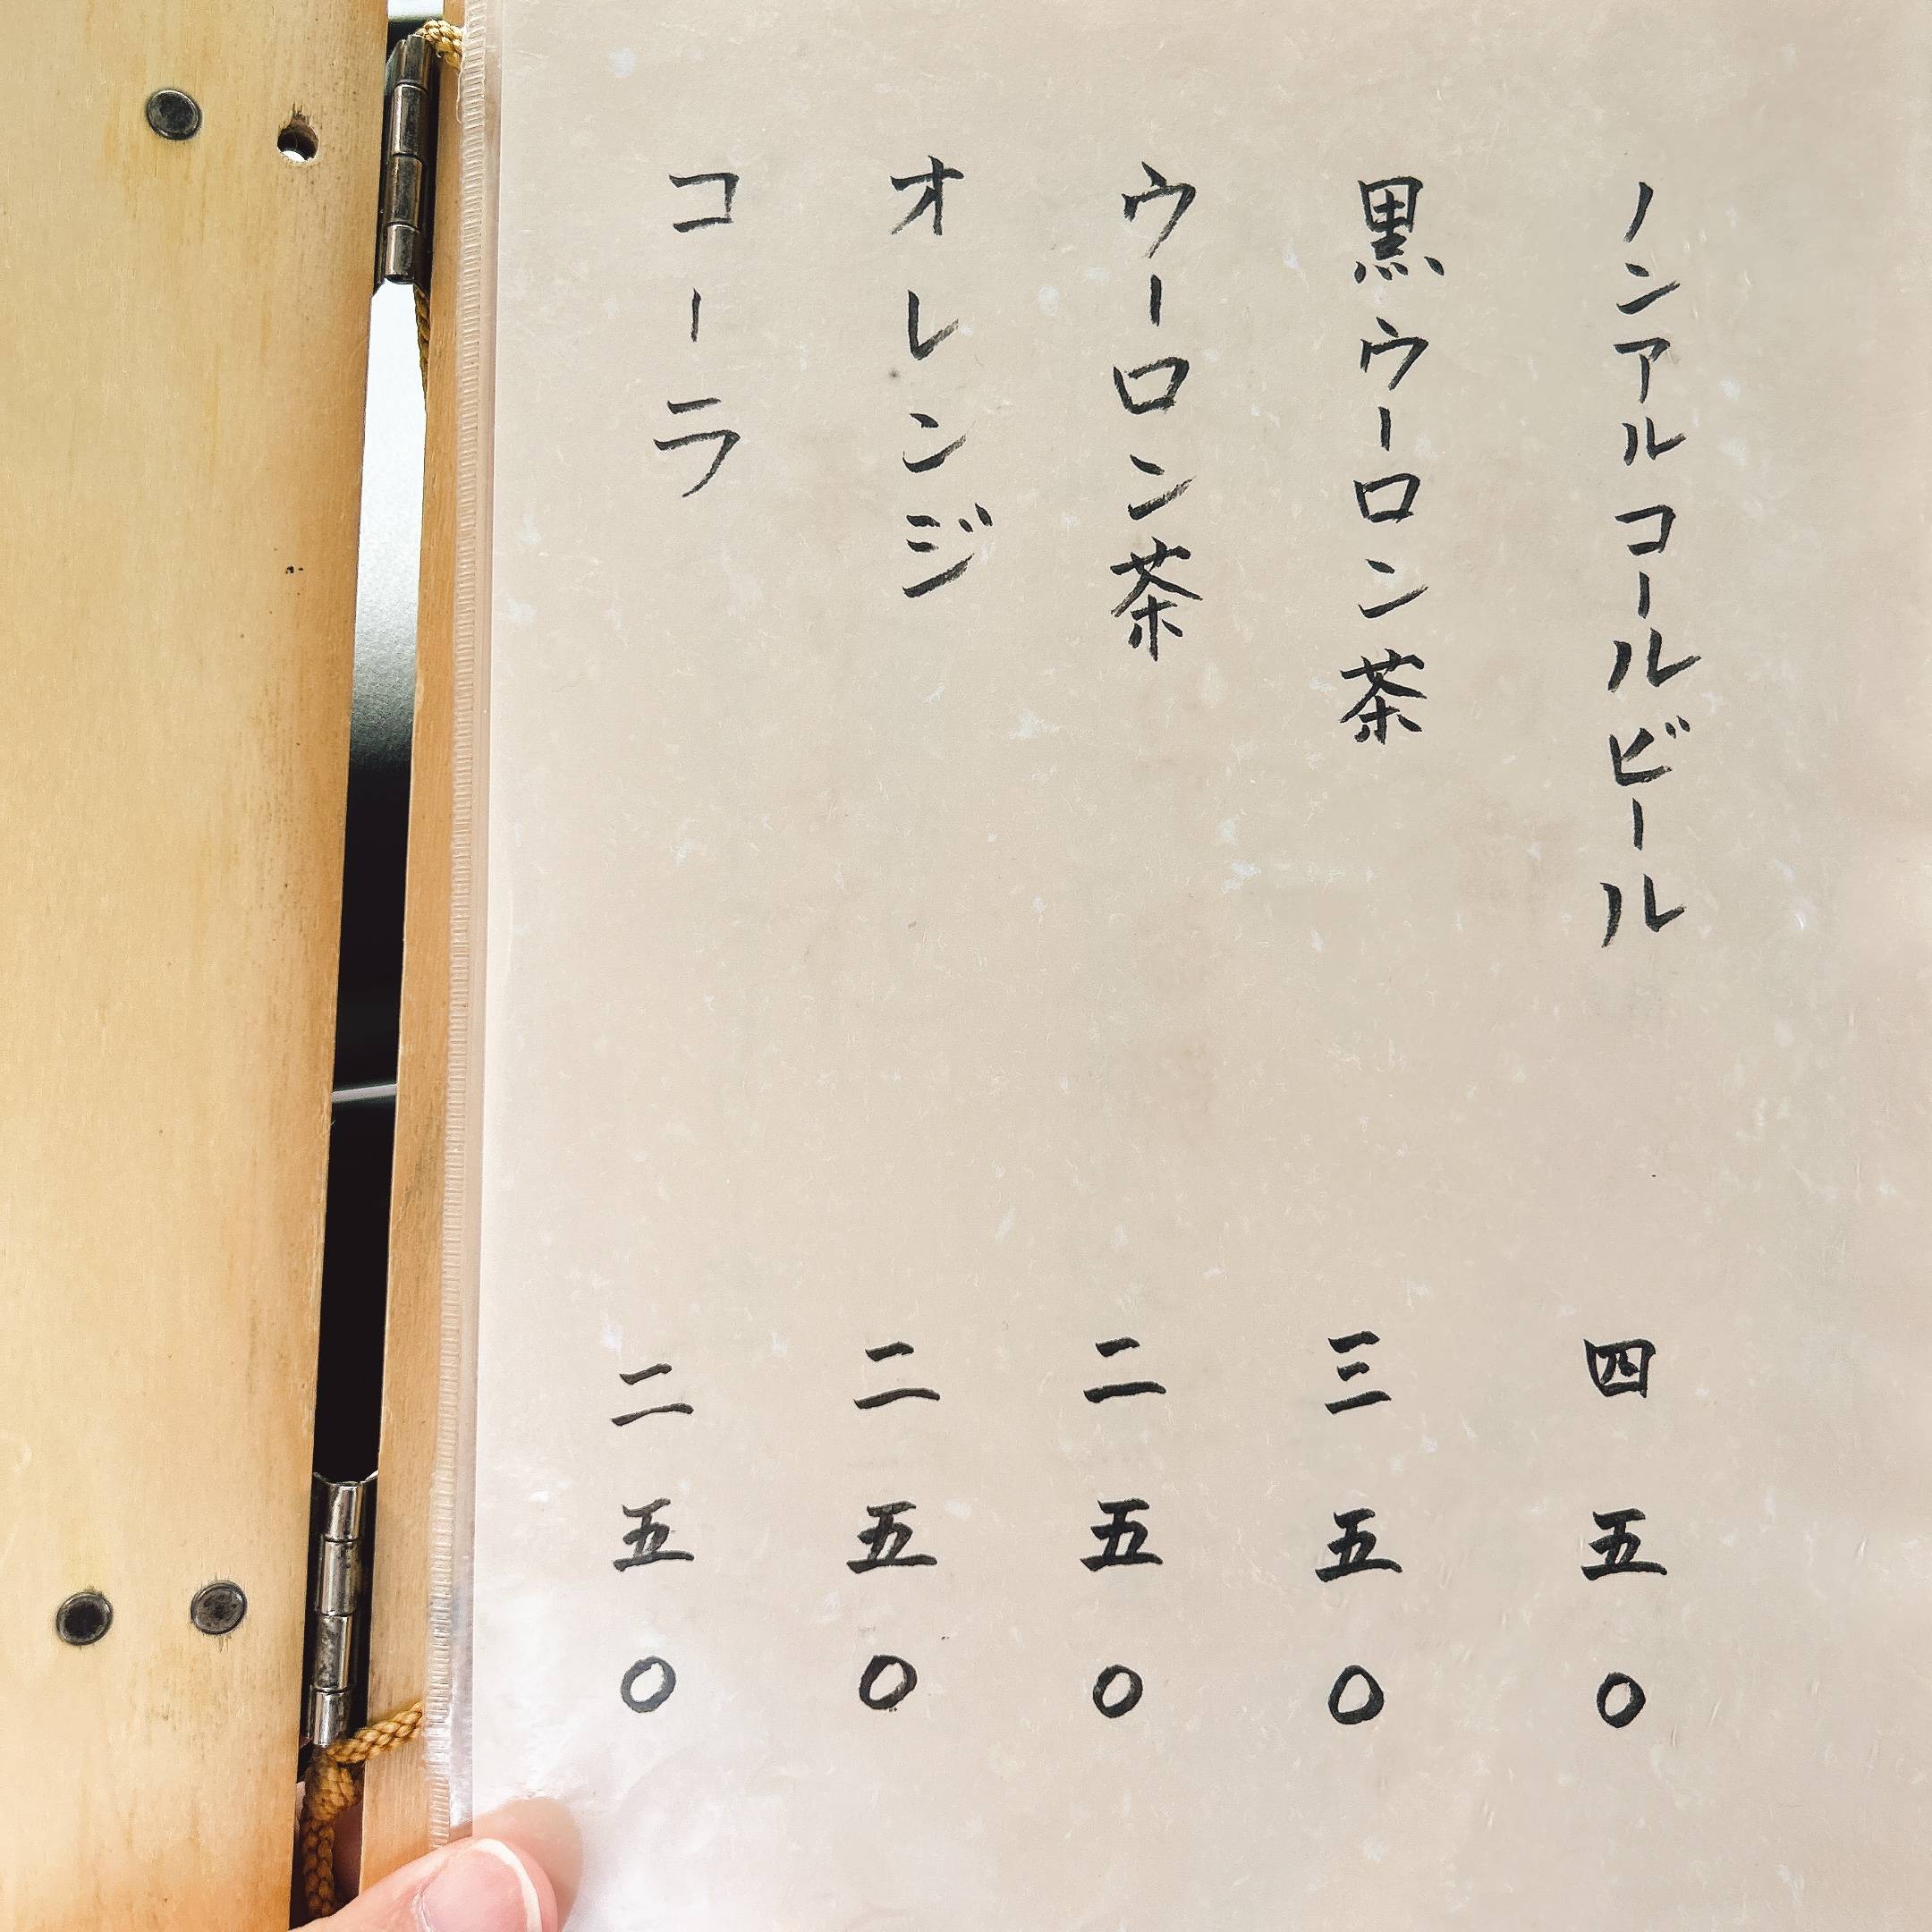 ノンアルコールビール 四五〇
黒ウーロン茶 三五〇
ウーロン茶 二五〇
オレンジ 二五〇
コーラ 二五〇